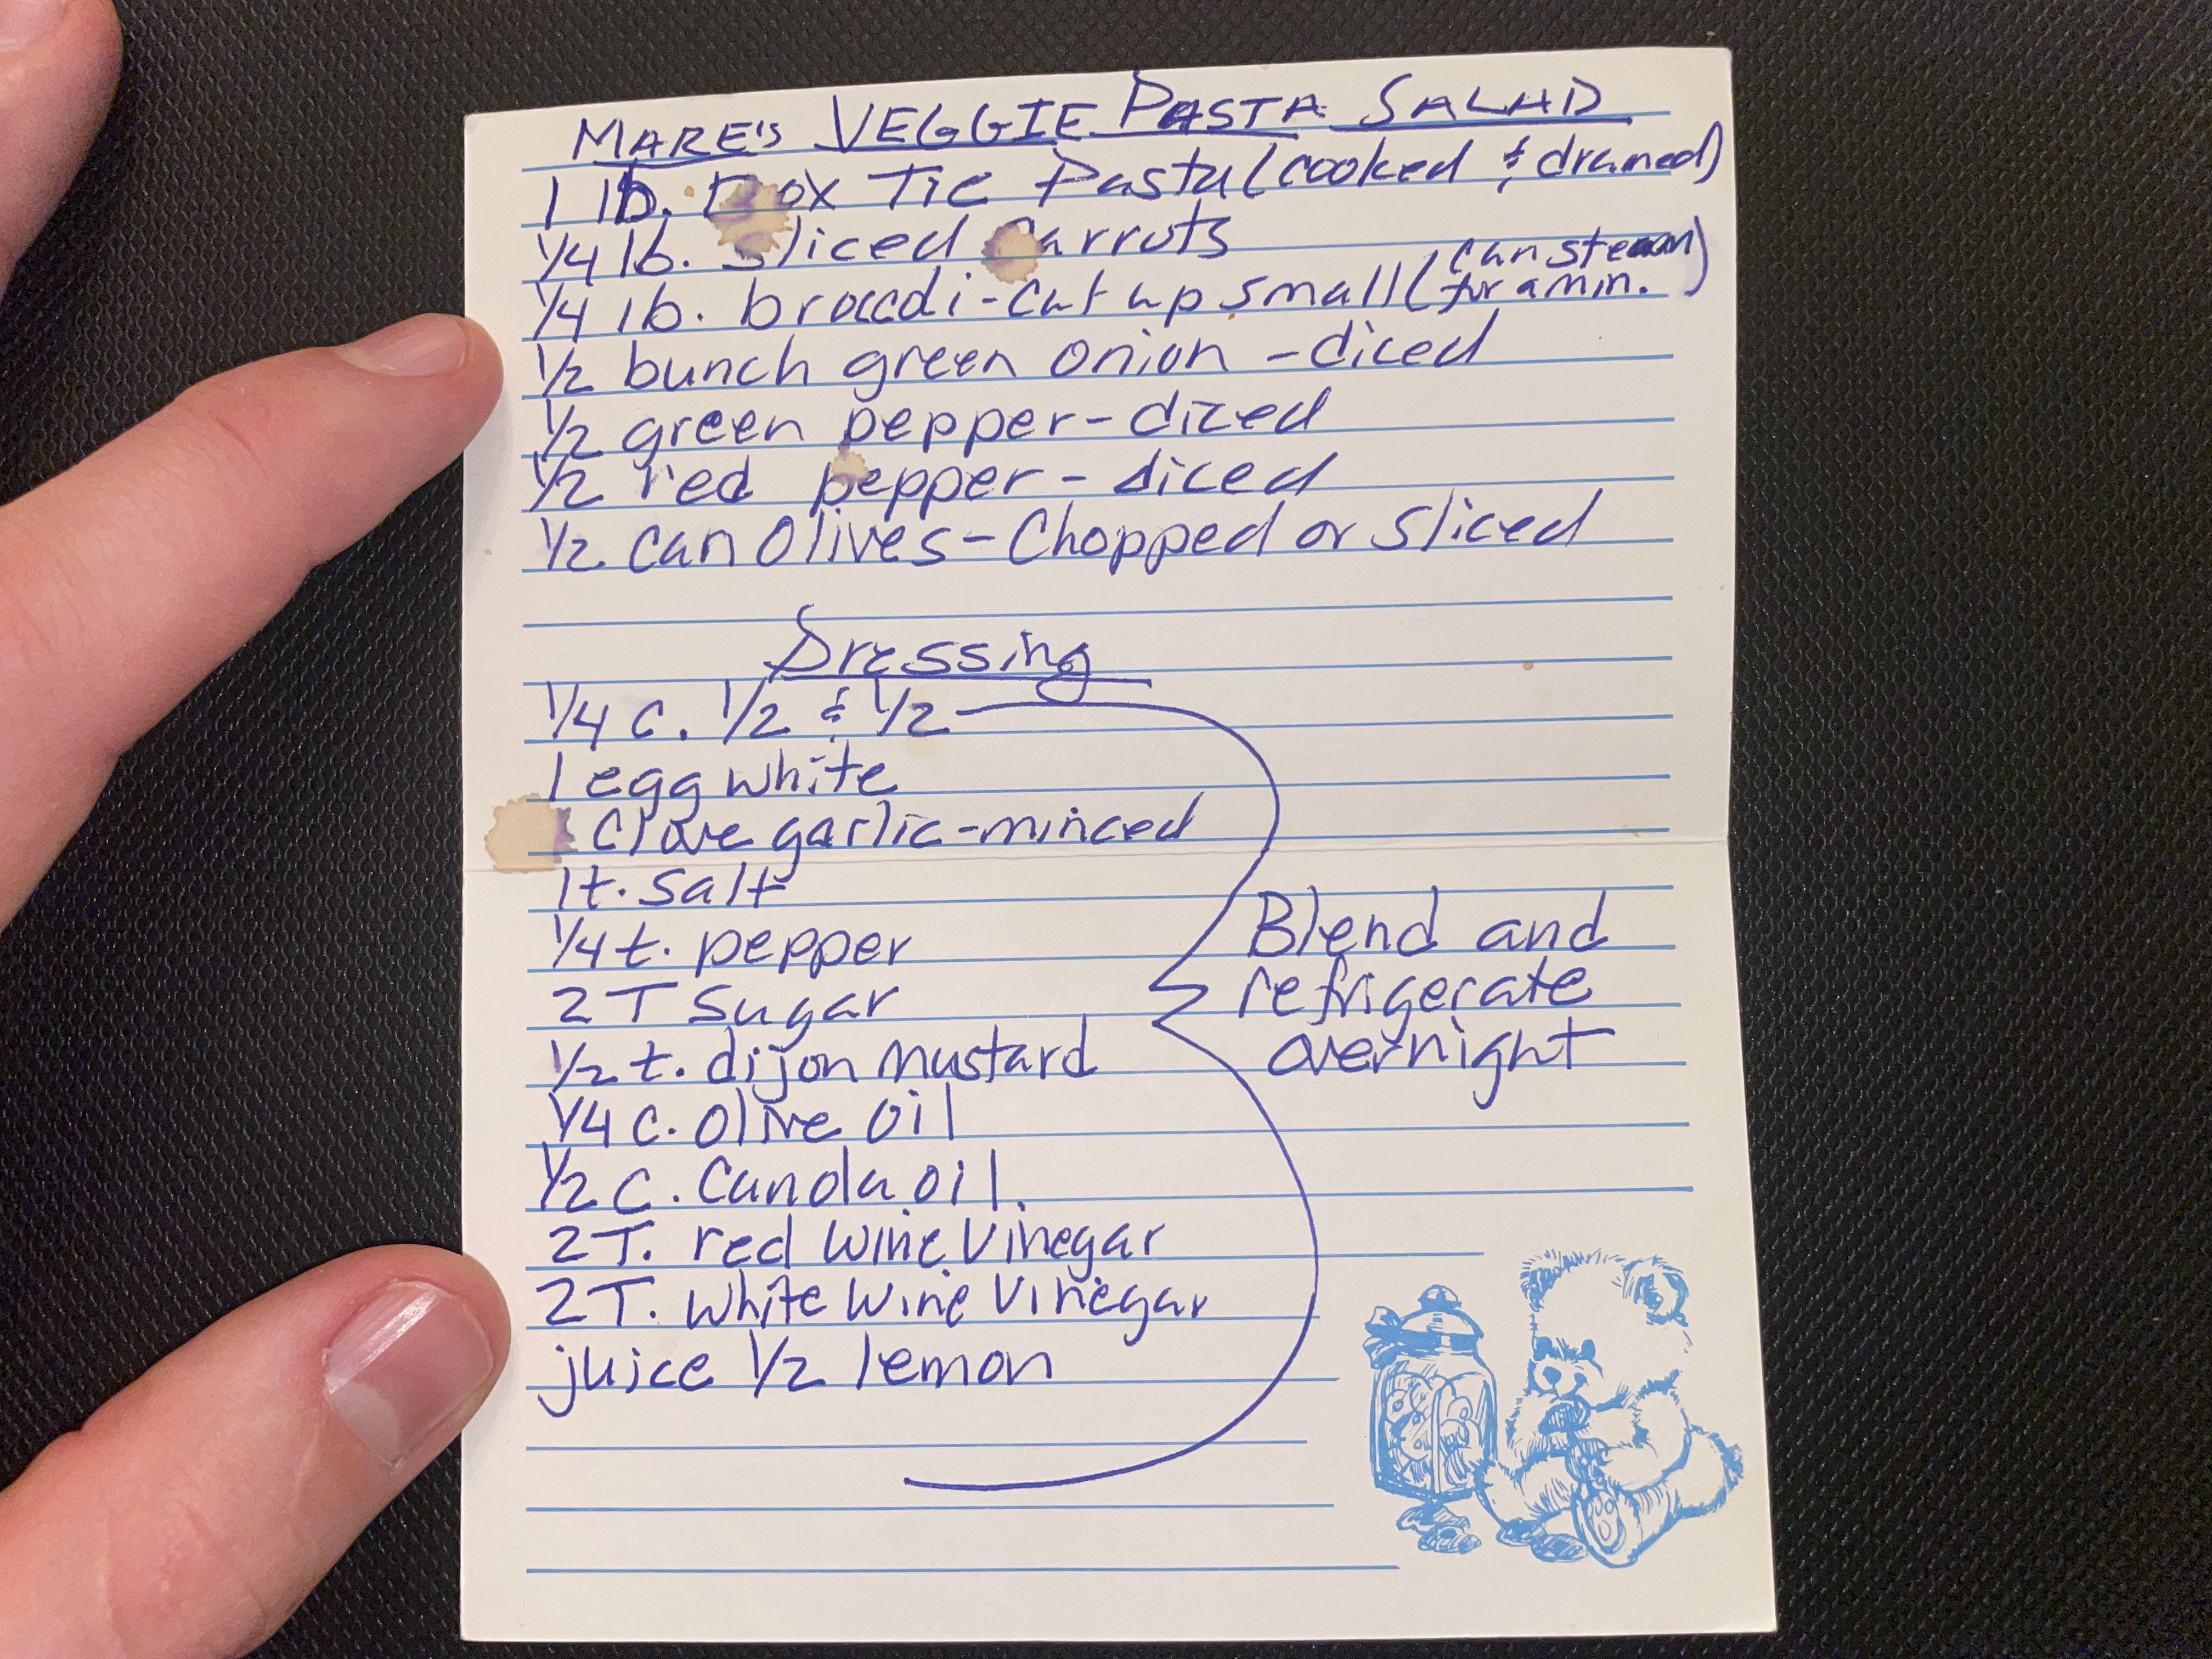 MARE'S VEGGIE PASTA SALAD
1 lb. Box Tie Pasta (cooked & drained)
1/4 lb. Sliced Carrots
1/4 lb. broccoli - cut up small (can steam for a min.)
1/2 bunch green onion - diced
1/2 green pepper - diced
1/2 red pepper - diced
1/2 can Olives - Chopped or sliced
Dressing
1/4 c. 1/2 & 1/2
1 egg white
Clove garlic - minced
1 t. salt
1/4 t. pepper
2 T sugar
1/2 t. dijon mustard
1/4 c. olive oil
1/2 c. Canola oil.
2 T. red wine vinegar
2 T. white wine vinegar
juice 1/2 lemon
Blend and
refrigerate
overnight